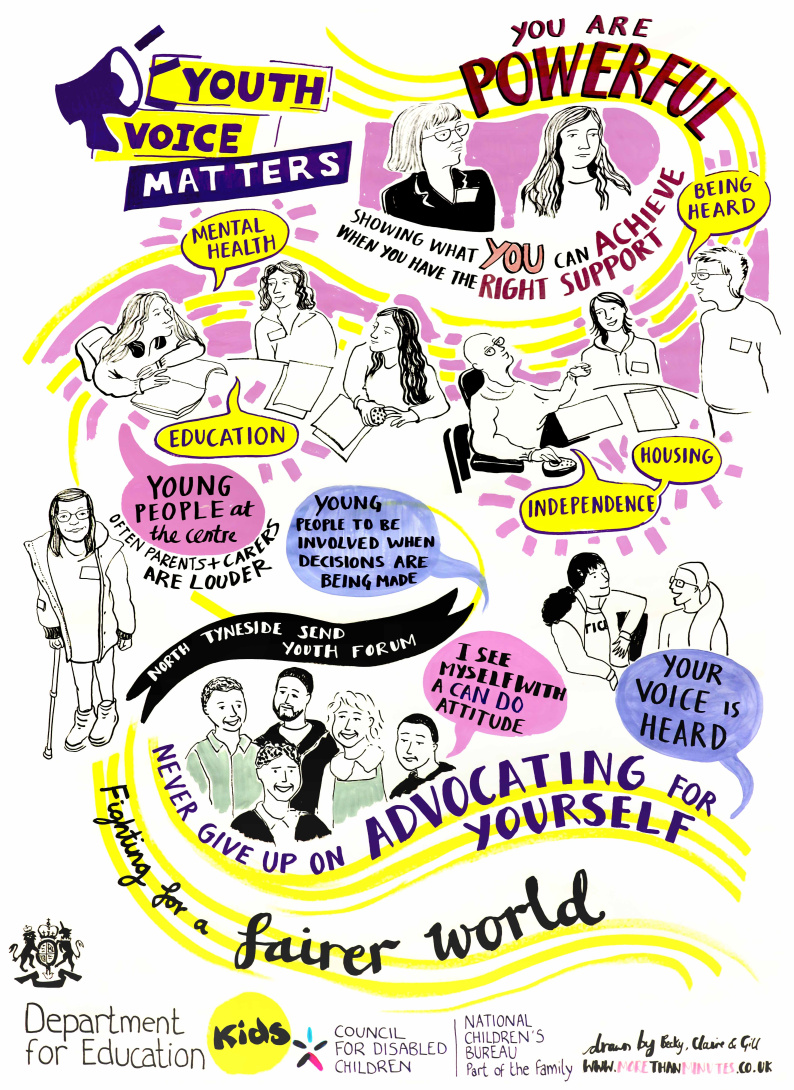 YOUTH
VOICE
MATTERS
YOU ARE
POWERFUL
SHOWING WHAT YOU CAN ACHIEVE
WHEN YOU HAVE THE RIGHT SUPPORT
BEING
HEARD
MENTAL
HEALTH
EDUCATION
HOUSING
INDEPENDENCE
YOUNG
PEOPLE at
the centre
OFTEN PARENTS + CARERS
ARE LOUDER
YOUNG
PEOPLE TO BE
INVOLVED WHEN
DECISIONS ARE
BEING MADE
NORTH TYNESIDE SEND
YOUTH FORUM
I SEE
MYSELF WITH
A CAN DO
ATTITUDE
YOUR
VOICE IS
HEARD
NEVER GIVE UP ON ADVOCATING FOR
YOURSELF
Fighting for a fairer world
Department
for Education
Kids
COUNCIL
FOR DISABLED
CHILDREN
NATIONAL
CHILDREN'S
BUREAU
Part of the family
drawn by Becky, Claire & Gill
WWW.MORETHANMINUTES.CO.UK